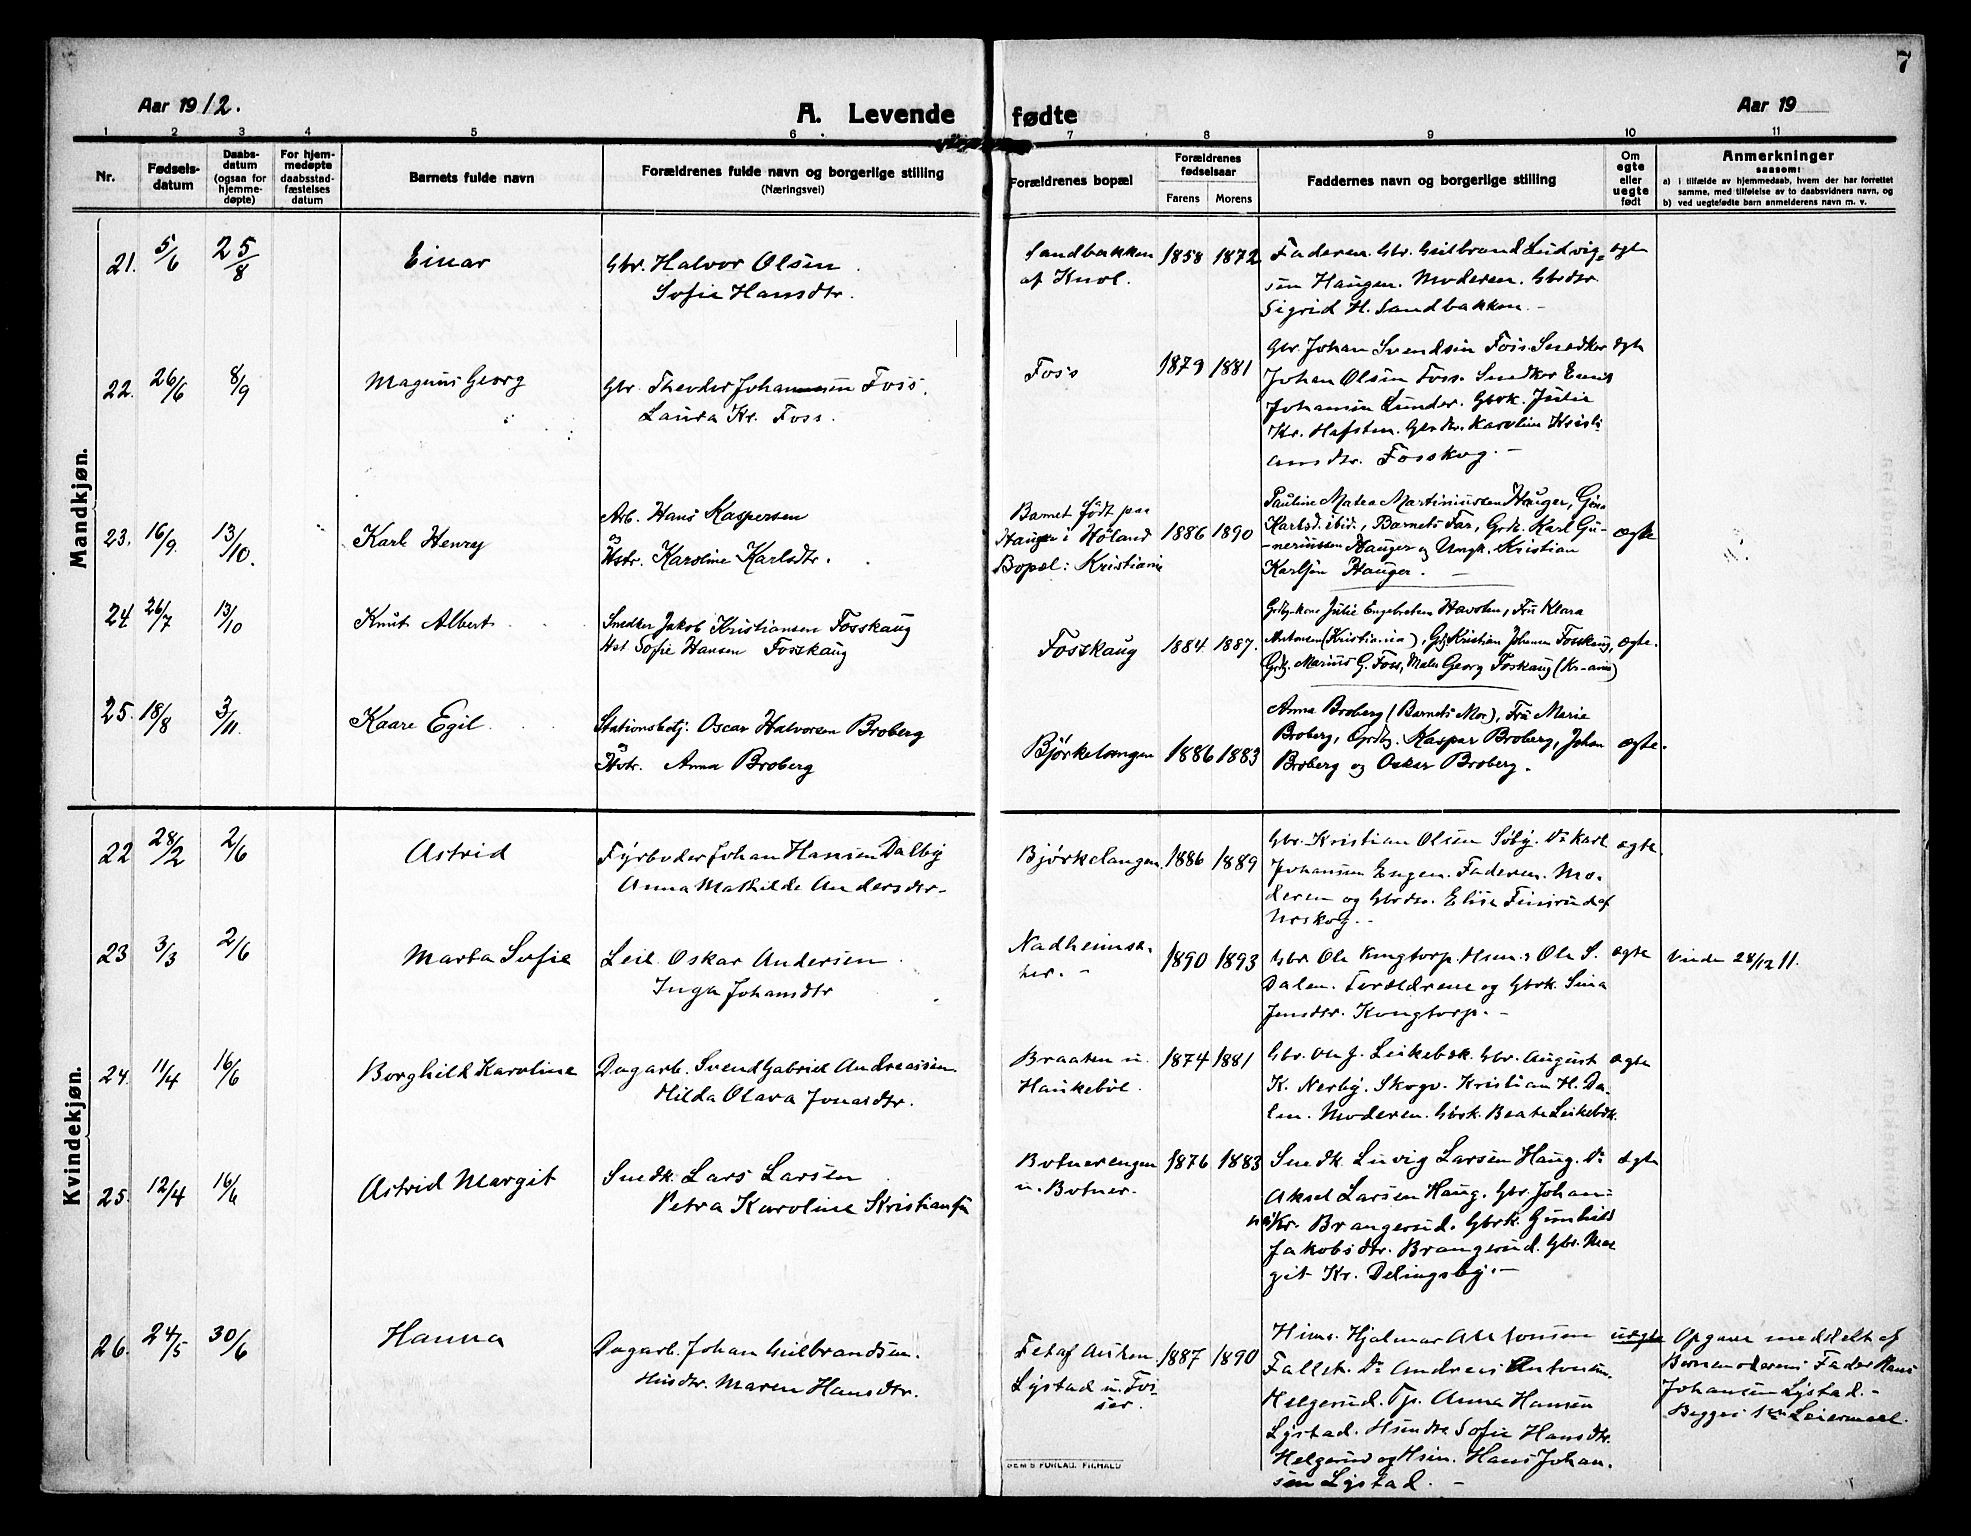 7
Aar 1912.
A. Levende fødte
Aar 19
1 2 3 4 5 6 7 8 9 10 11
Nr.
Fødsels-
datum
Daabs-
datum
(ogsaa for
hjemme-
døpte)
For hjem-
medøpte
daabsstad-
fæstelses
datum
Barnets fulde navn
Forældrenes fulde navn og borgerlige stilling
(Næringsvei)
Forældrenes bopæl
Forældrenes
fødselsaar
Farens Morens
Faddernes navn og borgerlige stilling
Om
egte
eller
uegte
født
Anmerkninger
saasom:
a) i tilfælde av hjemmedaab, hvem der har forrettet
samme, med tilføielse av to daabsvidners navn, og
b) ved uegtefødte barn anmelderens navn m. v.
Mandkjøn.
21. 5/6 25/8 Einar
Gbr. Halvor Olsen
Sofie Hansdtr.
Sandbakken
af Knol.
1858 1872
Faderen. Gbr. Gulbrand Ludvig=
sen Haugen. Moderen. Gbrdtr.
Sigrid H. Sandbakken. –
egte
22. 26/6 8/9 Magnus Georg
Gbr. Theodor Johannesen Foss.
Laura Kr. Foss.
Foss
1879 1881
Gbr. Johan Svendsen Foss. Snedker
Johan Olsen Foss. Snedker Emil
Johansen Lunder. Gbrk. Julie
Kr. Hafsten. Gbrdtr. Karoline Kristi-
ansdtr. Fosskog. –
egte
23. 16/9. 13/10. Karl Henry
Arb. Hans Kaspersen
og
Hstr. Karoline Karlsdtr.
Barnet født paa
Hauger i Høland
Bopæl: Kristiania
1886 1890
Pauline Matea Martiniussen Hauger, Gina
Karlsd. ibid., Barnets Far, Grdb. Karl Gu-
neriussen Hauger og Ungk. Kristian
Karlsen Hauger. –
ægte
24 26/7 13/10 Knut Albert
Snedker Jakob Kristiansen Fosskaug
Hst Sofie Hansen Fosskaug
Fosskaug
1884 1887.
Grdbr.kone Julie Engebretsen Havsten, Fru Klara
Antonsen (Kristiania), Grdb. Kristian Johansen Fosskaug,
Grdb. Marius G. Foss, Maler Georg Foskaug (Kr-ania)
ægte.
25. 18/8 3/11. Kaare Egil
Stationsbetj. Oscar Halvorsen Broberg
og
Hstr. Anna Broberg
Bjørkelangen
1886 1883
Anna Broberg (Barnets Mor), Fru Marie
Broberg, Grdb. Kaspar Broberg, Johan
Broberg og Oskar Broberg.
ægte.
Kvindekjøn.
22 28/2 2/6 Astrid
Fyrbøder Johan Hansen Dalby
Anna Mathilde Andersdtr.
Bjørkelangen
1886 1889
Gbr. Kristian Olsen Søby. Do Karl
Johansen Engen. Faderen. Mo-
deren og Gbrdtr. Elise Finsrud af
Urskog. –
egte.
23 3/3 2/6 Marta Sofie
Leil. Oskar Andersen
Inga Johansdtr
1890 1893
Gbr Ole Kongtorp. Hsm.s Ole S.
Dalen. Forældrene og Gbrk. Sina
Jensdtr. Kongtorp. –
egte
Viede 28/12 11.
24. 11/4 16/6 Borghild Karoline
Dagarb. Svend Gabriel Andreassen
Hilda Olava Jonasdtr.
Braaten u.
Haukebøl.
1874 1881
Gbr. Ole J. Leikebæk. Gbr. August
K. Nerby. Skogv. Kristian H. Da-
len. Moderen. Gbrk. Beate Leikebæk.
egte
25. 12/4 16/6 Astrid Margit
Snedk. Lars Larsen
Petra Karoline Kristiansen
Botnerengen
u. Botner.
1876 1883
Snedk. Luvig Larsen Haug. Do
Aksel Larsen Haug. Gbr. Johan-
Kr. Brangerud. Gbrk. Gunhild
Jakobsdtr. Brangerud. Gbr. Mar
git Kr. Delingsby. –
egte
26. 24/5 30/6 Hanna
Dagarb. Johan Gulbrandsen.
Husdtr. Maren Hansdtr.
Fet af Aursen
Lystad u. Fos-
ser.
1887 1890
Hsms. Hjalmar Antonsen
Fallet. Do Andreas Antonsen
Helgerud. Tp. Anna Hansen
Lystad. Hsmdtr Sofie Hansdtr.
Helgerud og Hsm. Hans Johan-
sen Lystad. –
uegte
Opgave meddelt af
Barnemoderens Fader Hans
Johansen Lystad. –
Begges 1ste Leiermaal.
SEM'S FORLAG. FR.HALD